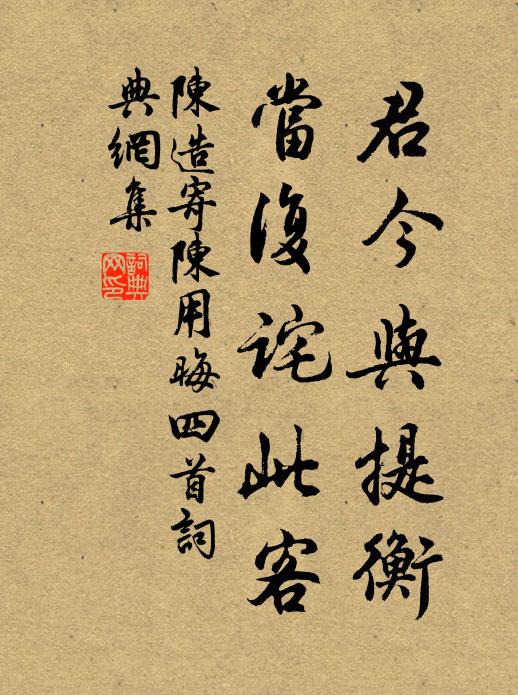 君今與提衡
當復詫此客
陳造寄陳用晦四首詞
典網集
詞典網印